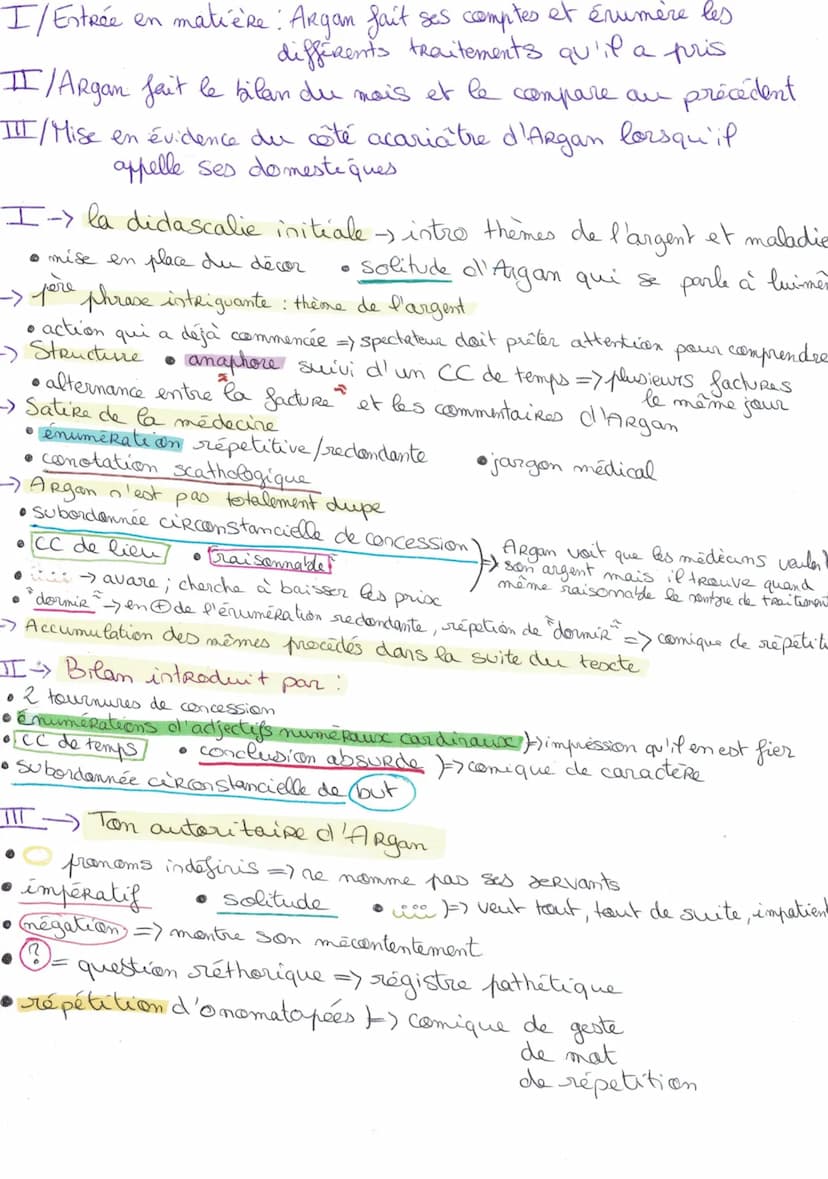 I/Entrée en matière : Argan fait ses comptes et énumère les
différents traitements qu'il a pris
II/Argan fait le bilan du mois et le compare au précédent
III/Mise en évidence du côté acariâtre d'Argan lorsqu'il
appelle ses domestiques
I -> la didascalie initiale -> intro thèmes de l'argent et maladie
• mise en place du décor • solitude d'Argan qui se parle à lui-même
-> 1ère phrase intriguante : thème de l'argent
• action qui a déjà commencée => spectateur doit prêter attention pour comprendre
-> Structure • anaphore suivi d'un CC de temps => plusieurs factures
le même jour
• alternance entre "la facture" et les commentaires d'Argan
-> Satire de la médecine
• énumération répétitive/redondante • jargon médical
• conotation scathologique
-> Argan n'est pas totalement dupe
• subordonnée circonstancielle de concession
• CC de lieu • raisonnable
=> Argan voit que les médecins veulent
son argent mais il trouve quand
même raisonable le nombre de traitement
• iii -> avare ; cherche à baisser les prix
• "dormir" -> en + de l'énumération redondante, répétion de "dormir" => comique de répétiti
-> Accumulation des mêmes procédés dans la suite du texte
II -> Bilan introduit par :
• 2 tournures de concession
• Énumérations d'adjectifs numéraux cardinaux }=> impréssion qu'il en est fier
• CC de temps • conclusion absurde }=> comique de caractère
• subordonnée circonstancielle de but
III -> Ton autoritaire d'Argan
• pronoms indéfinis => ne nomme pas ses servants
• impératif • solitude • iii }=> veut tout, tout de suite, impatient
• négation => montre son mécontentement
• ? = question réthorique => régistre pathétique
• répétition d'onomatopées }-> comique de geste
de mot
de répetition